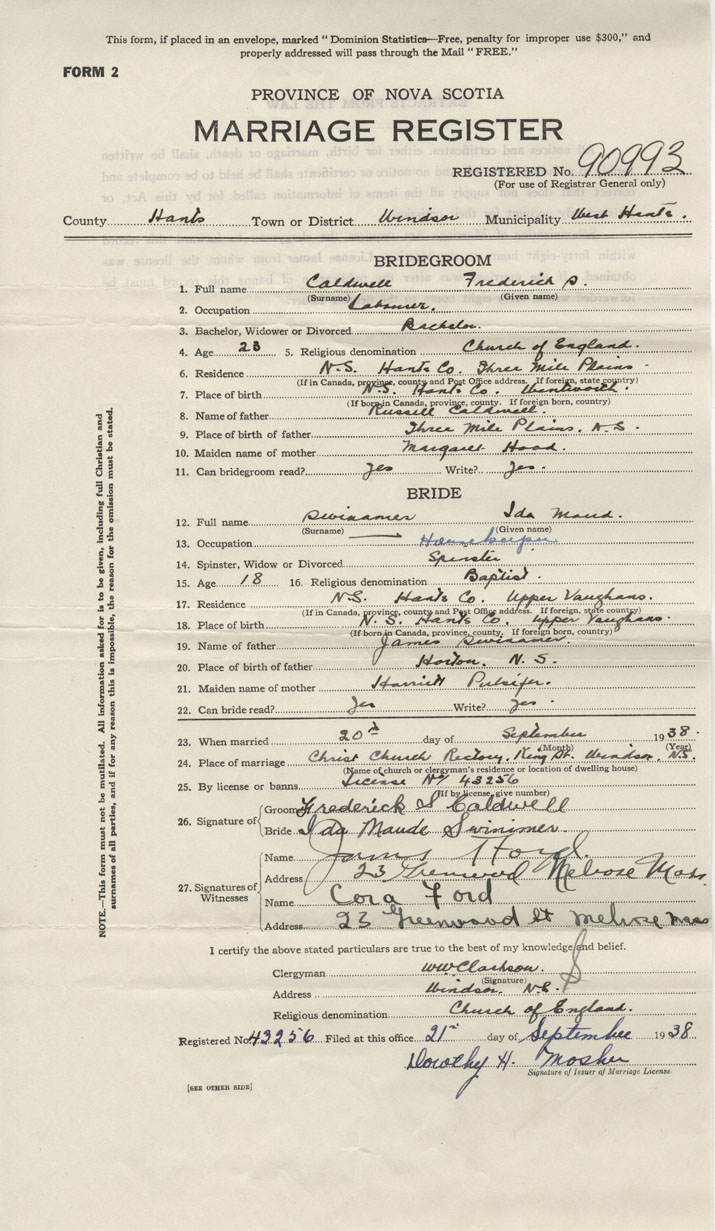 This form, if placed in an envelope, marked "Dominion Statistics—Free, penalty for improper use $300," and
properly addressed will pass through the Mail "FREE."
FORM 2
PROVINCE OF NOVA SCOTIA
MARRIAGE REGISTER
REGISTERED No. 90993
(For use of Registrar General only)
County Hants Town or District Windsor Municipality West Hants.
BRIDEGROOM
1. Full name Caldwell Frederick S.
(Surname) (Given name)
2. Occupation Labourer.
3. Bachelor, Widower or Divorced Bachelor.
4. Age 23 5. Religious denomination Church of England.
6. Residence N.S. Hants Co. Three Mile Plains
(If in Canada, province, county and Post Office address. If foreign, state country)
7. Place of birth N.S. Hants Co. Wentworth.
(If born in Canada, province, county. If foreign born, country)
8. Name of father Russell Caldwell.
9. Place of birth of father Three Mile Plains, N.S.
10. Maiden name of mother Margaret Hood.
11. Can bridegroom read? Yes Write? Yes.
BRIDE
12. Full name Swinamer Ida Maud.
(Surname) (Given name)
13. Occupation Housekeeper.
14. Spinster, Widow or Divorced Spinster
15. Age 18 16. Religious denomination Baptist.
17. Residence N.S. Hants Co. Upper Vaughans.
(If in Canada, province, county and Post Office address. If foreign, state country)
18. Place of birth N.S. Hants Co. Upper Vaughans.
(If born in Canada, province, county. If foreign born, country)
19. Name of father James Swinamer.
20. Place of birth of father Horton, N.S.
21. Maiden name of mother Harriett Pulsifer.
22. Can bride read? Yes Write? Yes.
23. When married 20th day of September 1938.
(Month) (Year)
24. Place of marriage Christ Church Rectory, King St. Windsor, N.S.
(Name of church or clergyman's residence or location of dwelling house)
25. By license or banns License No 43256
(If by license, give number)
26. Signature of Groom Frederick S Caldwell
Bride Ida Maude Swinimer.
27. Signatures of Witnesses
Name James Ford.
Address 23 Greenwood Melrose Mass.
Name Cora Ford
Address 23 Greenwood St Melrose Mass
I certify the above stated particulars are true to the best of my knowledge and belief.
Clergyman WW Clarkson.
(Signature)
Address Windsor, N.S.
Religious denomination Church of England.
Registered No. 43256 Filed at this office 21st day of September 1938
Dorothy H. Mosher
Signature of Issuer of Marriage License.
[SEE OTHER SIDE]
NOTE.—This form must not be mutilated. All information asked for is to be given, including full Christian and
surnames of all parties, and if for any reason this is impossible, the reason for the omission must be stated.